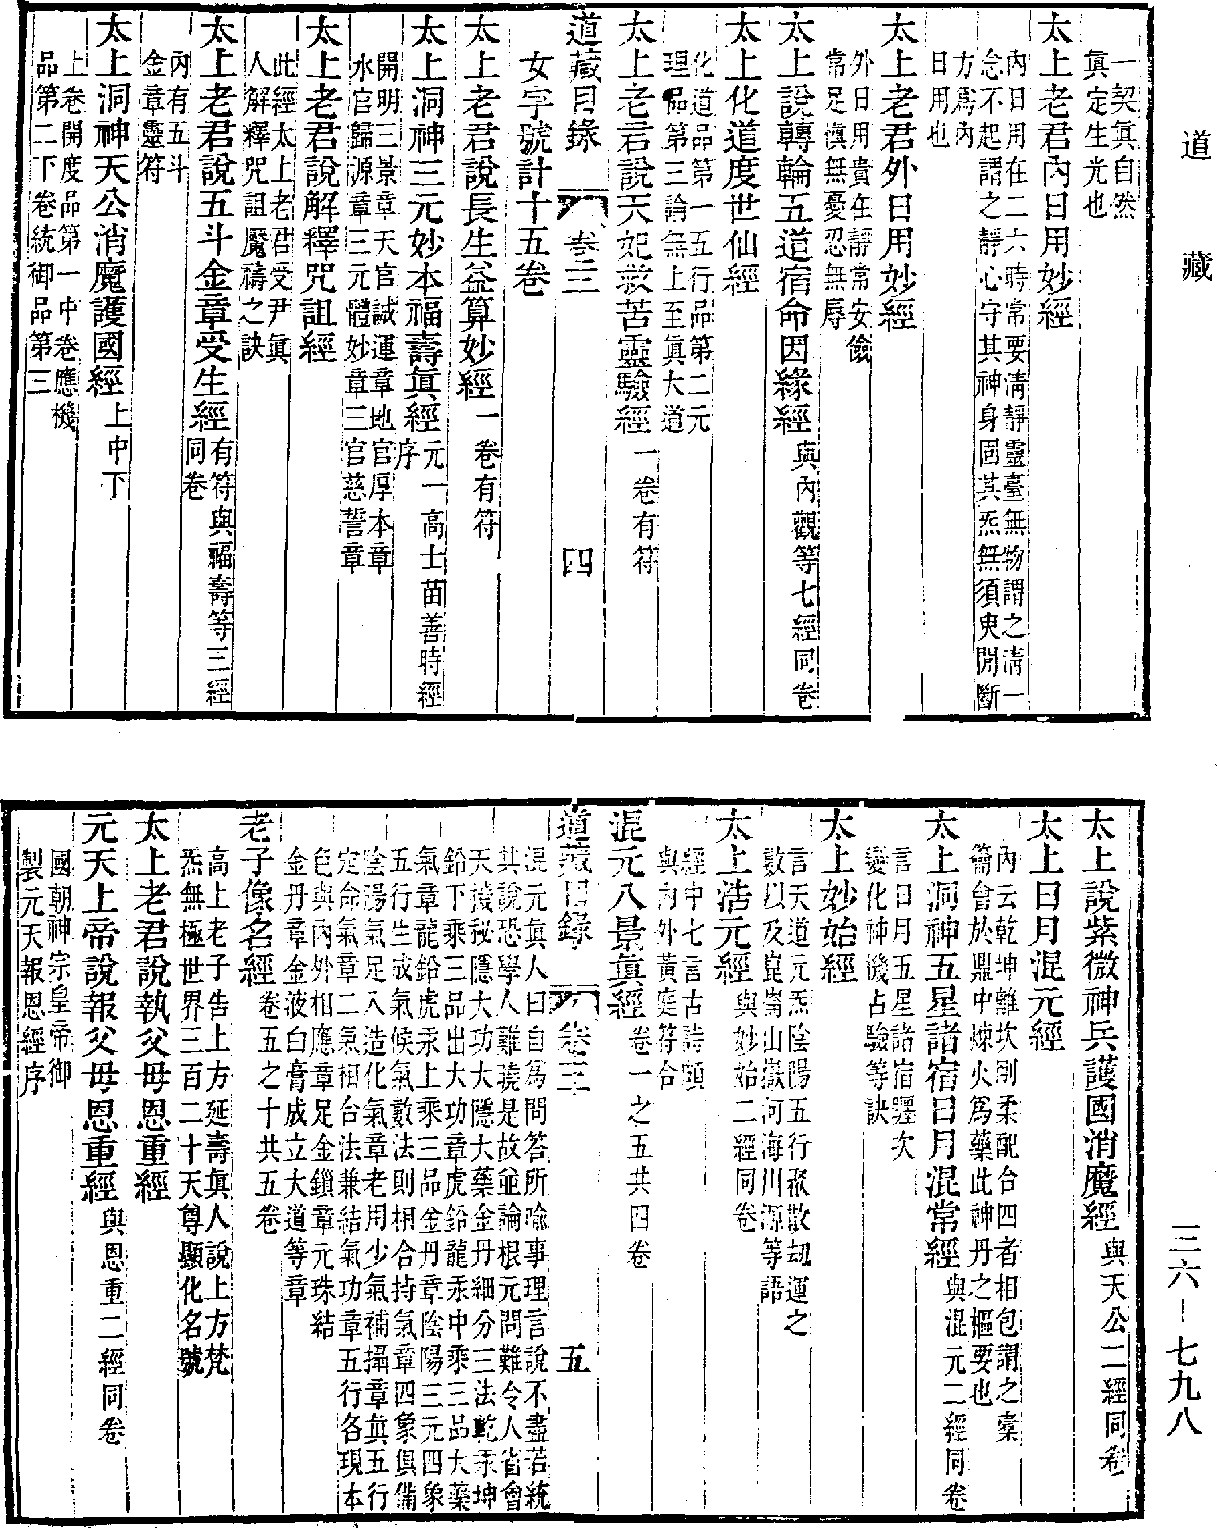 道藏
一契眞自然
眞定生光也
太上老君內日用妙經
內日用在二六時常要淸靜靈臺無物謂之淸一
念不起謂之靜心守其神身固其炁無須臾間斷
方爲內
日用也
太上老君外日用妙經
外日用貴在靜常安儉
常足愼無憂忍無辱
太上說轉輪五道宿命因緣經與內觀等七經同卷
太上化道度世仙經
化道品第一五行品第二元
理品第三論無上至眞大道
太上老君說天妃救苦靈驗經一卷有符
道藏目錄 卷三 四
女字號計十五卷
太上老君說長生益算妙經一卷有符
太上洞神三元妙本福壽眞經元一高士苗善時經
序
開明三景章天官誠運章地官厚本章
水官歸源章三元體妙章三官慈誓章
太上老君說解釋咒詛經
此經太上老君受尹眞
人解釋咒詛魘禱之訣
太上老君說五斗金章受生經有符與福壽等三經
同卷
內有五斗
金章靈符
太上洞神天公消魔護國經上中下
上卷開度品第一中卷應機
品第二下卷統御品第三
太上說紫微神兵護國消魔經與天公二經同卷
太上日月混元經
內云乾坤離坎剛柔配合四者相包謂之橐
籥會於鼎中煉火爲藥此神丹之樞要也
太上洞神五星諸宿日月混常經與混元二經同卷
言日月五星諸宿躔次
變化神機占驗等訣
太上妙始經
言天道元炁陰陽五行聚散劫運之
數以及崑崙山嶽河海川源等語
太上浩元經與妙始二經同卷
經中七言古詩頤
與內外黃庭符合
混元八景眞經卷一之五共四卷
道藏目錄 卷三 五
混元眞人曰自爲問答所喩事理言說不盡若統
其說恐學人難曉是故並論根元問難令人省會
天機秘隱大功大隱大藥金丹細分三法乾汞坤
鉛下乘三品出大功章虎鉛龍汞中乘三品大藥
氣章龍鉛虎汞上乘三品金丹章陰陽三元四象
五行生成氣候氣數法則相合持氣章四象俱備
陰陽氣足入造化氣章老用少氣補攝章眞五行
定命氣章二氣相合法兼結氣功章五行各現本
色與內外相應章足金鎖章元珠結
金丹章金波白膏成立大道等章
老子像名經卷五之十共五卷
高上老子告上方延壽眞人說上方梵
炁無極世界三百二十天尊顯化名號
太上老君說報父母恩重經
元天上帝說報父母恩重經與恩重二經同卷
國朝神宗皇帝御
製元天報恩經序
三六—七九八